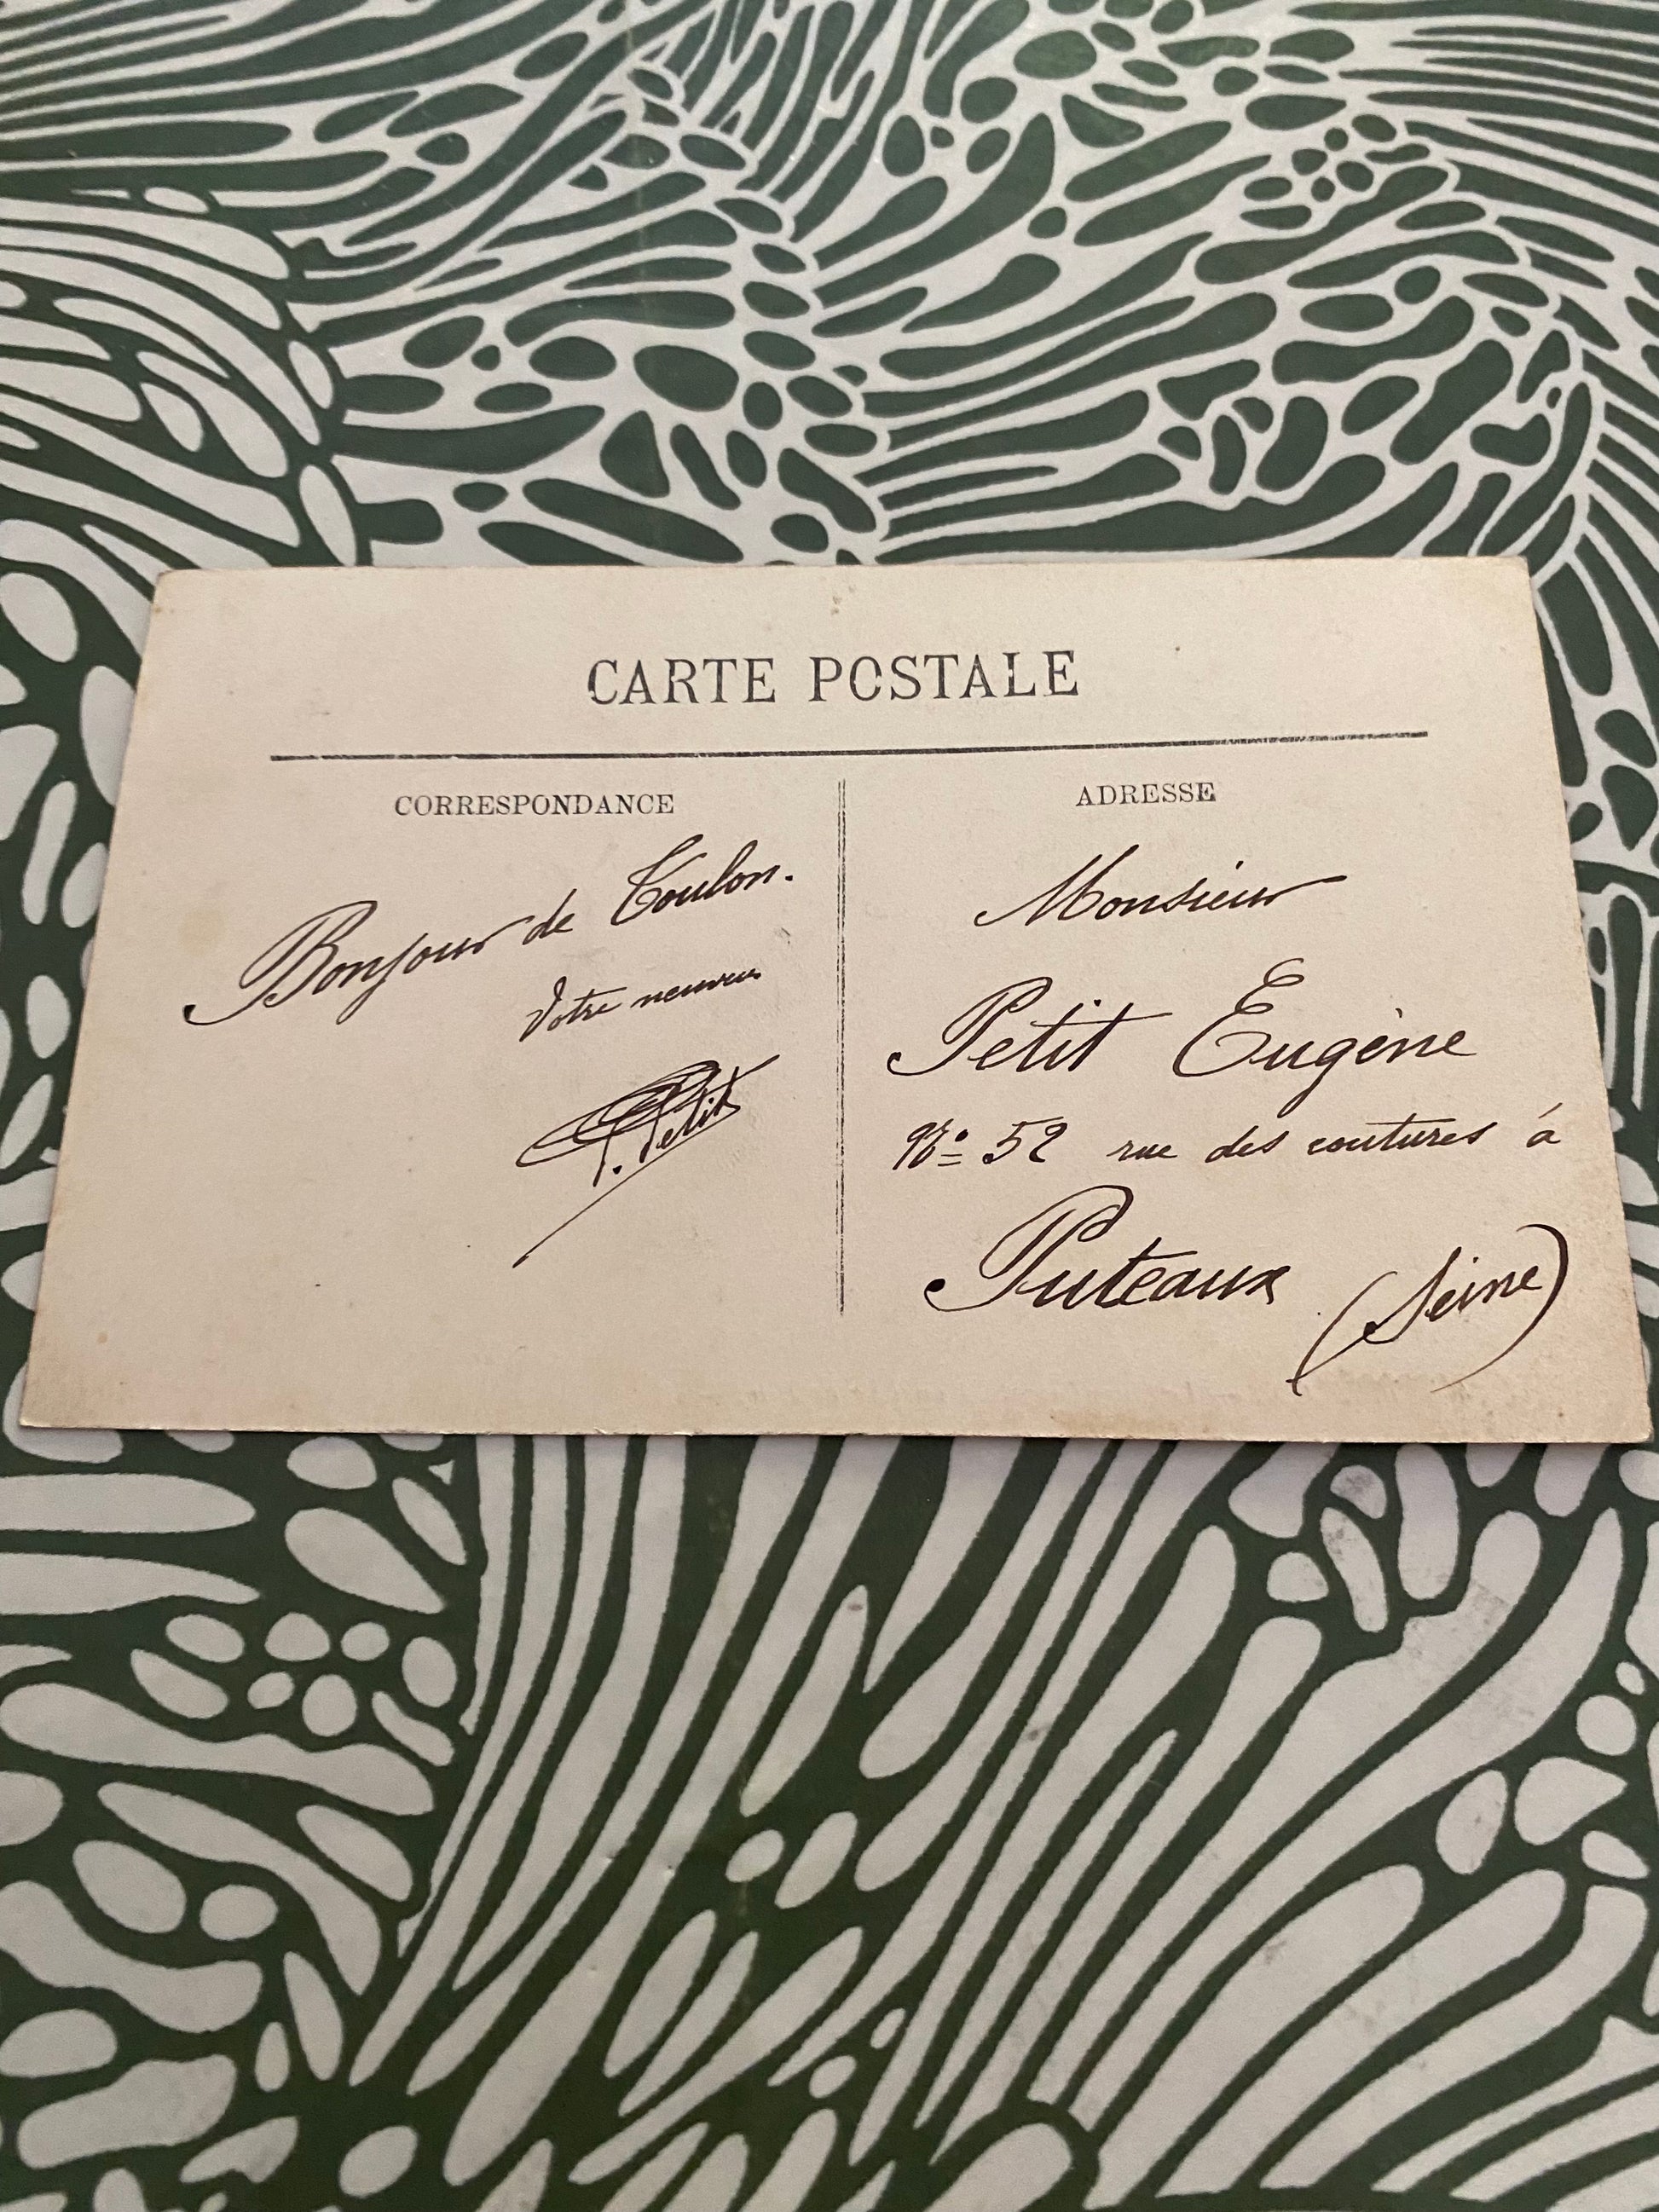 CARTE POSTALE
CORRESPONDANCE
Bonjour de Toulon.
Votre neuveu
P. Petit
ADRESSE
Monsieur
Petit Eugène
N° 52 rue des coutures à
Puteaux (Seine)